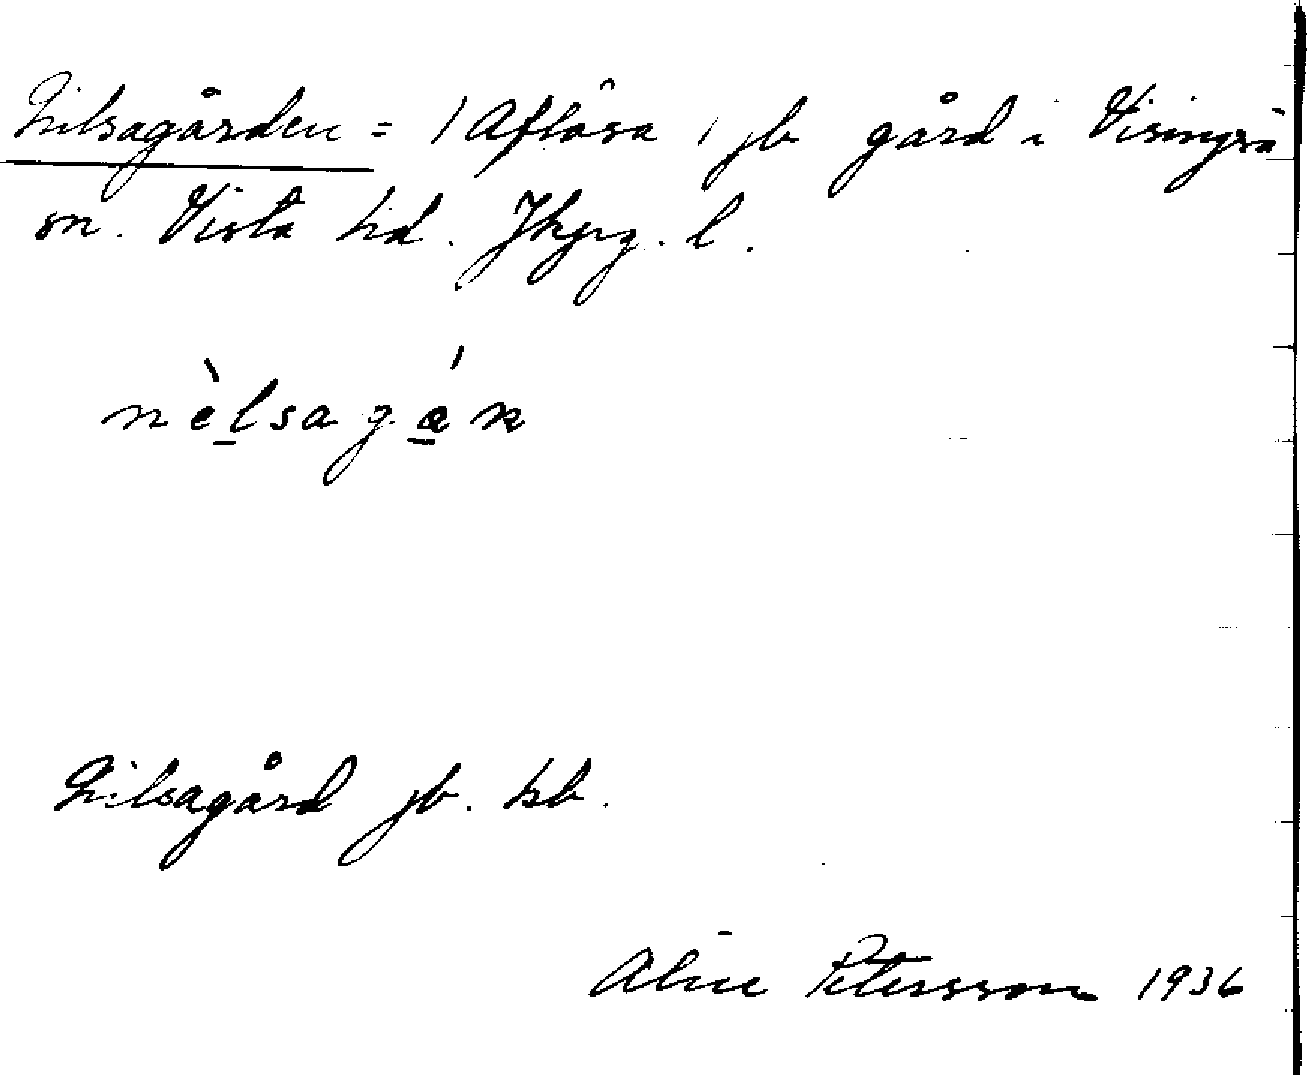 Nilsagården = 1 Aflösa 1 jb gård i Visingsö
sn. Vista hd. Jkpg. l.
nèlsagán
Nilsagård jb. hb.
Alice Petersson 1936